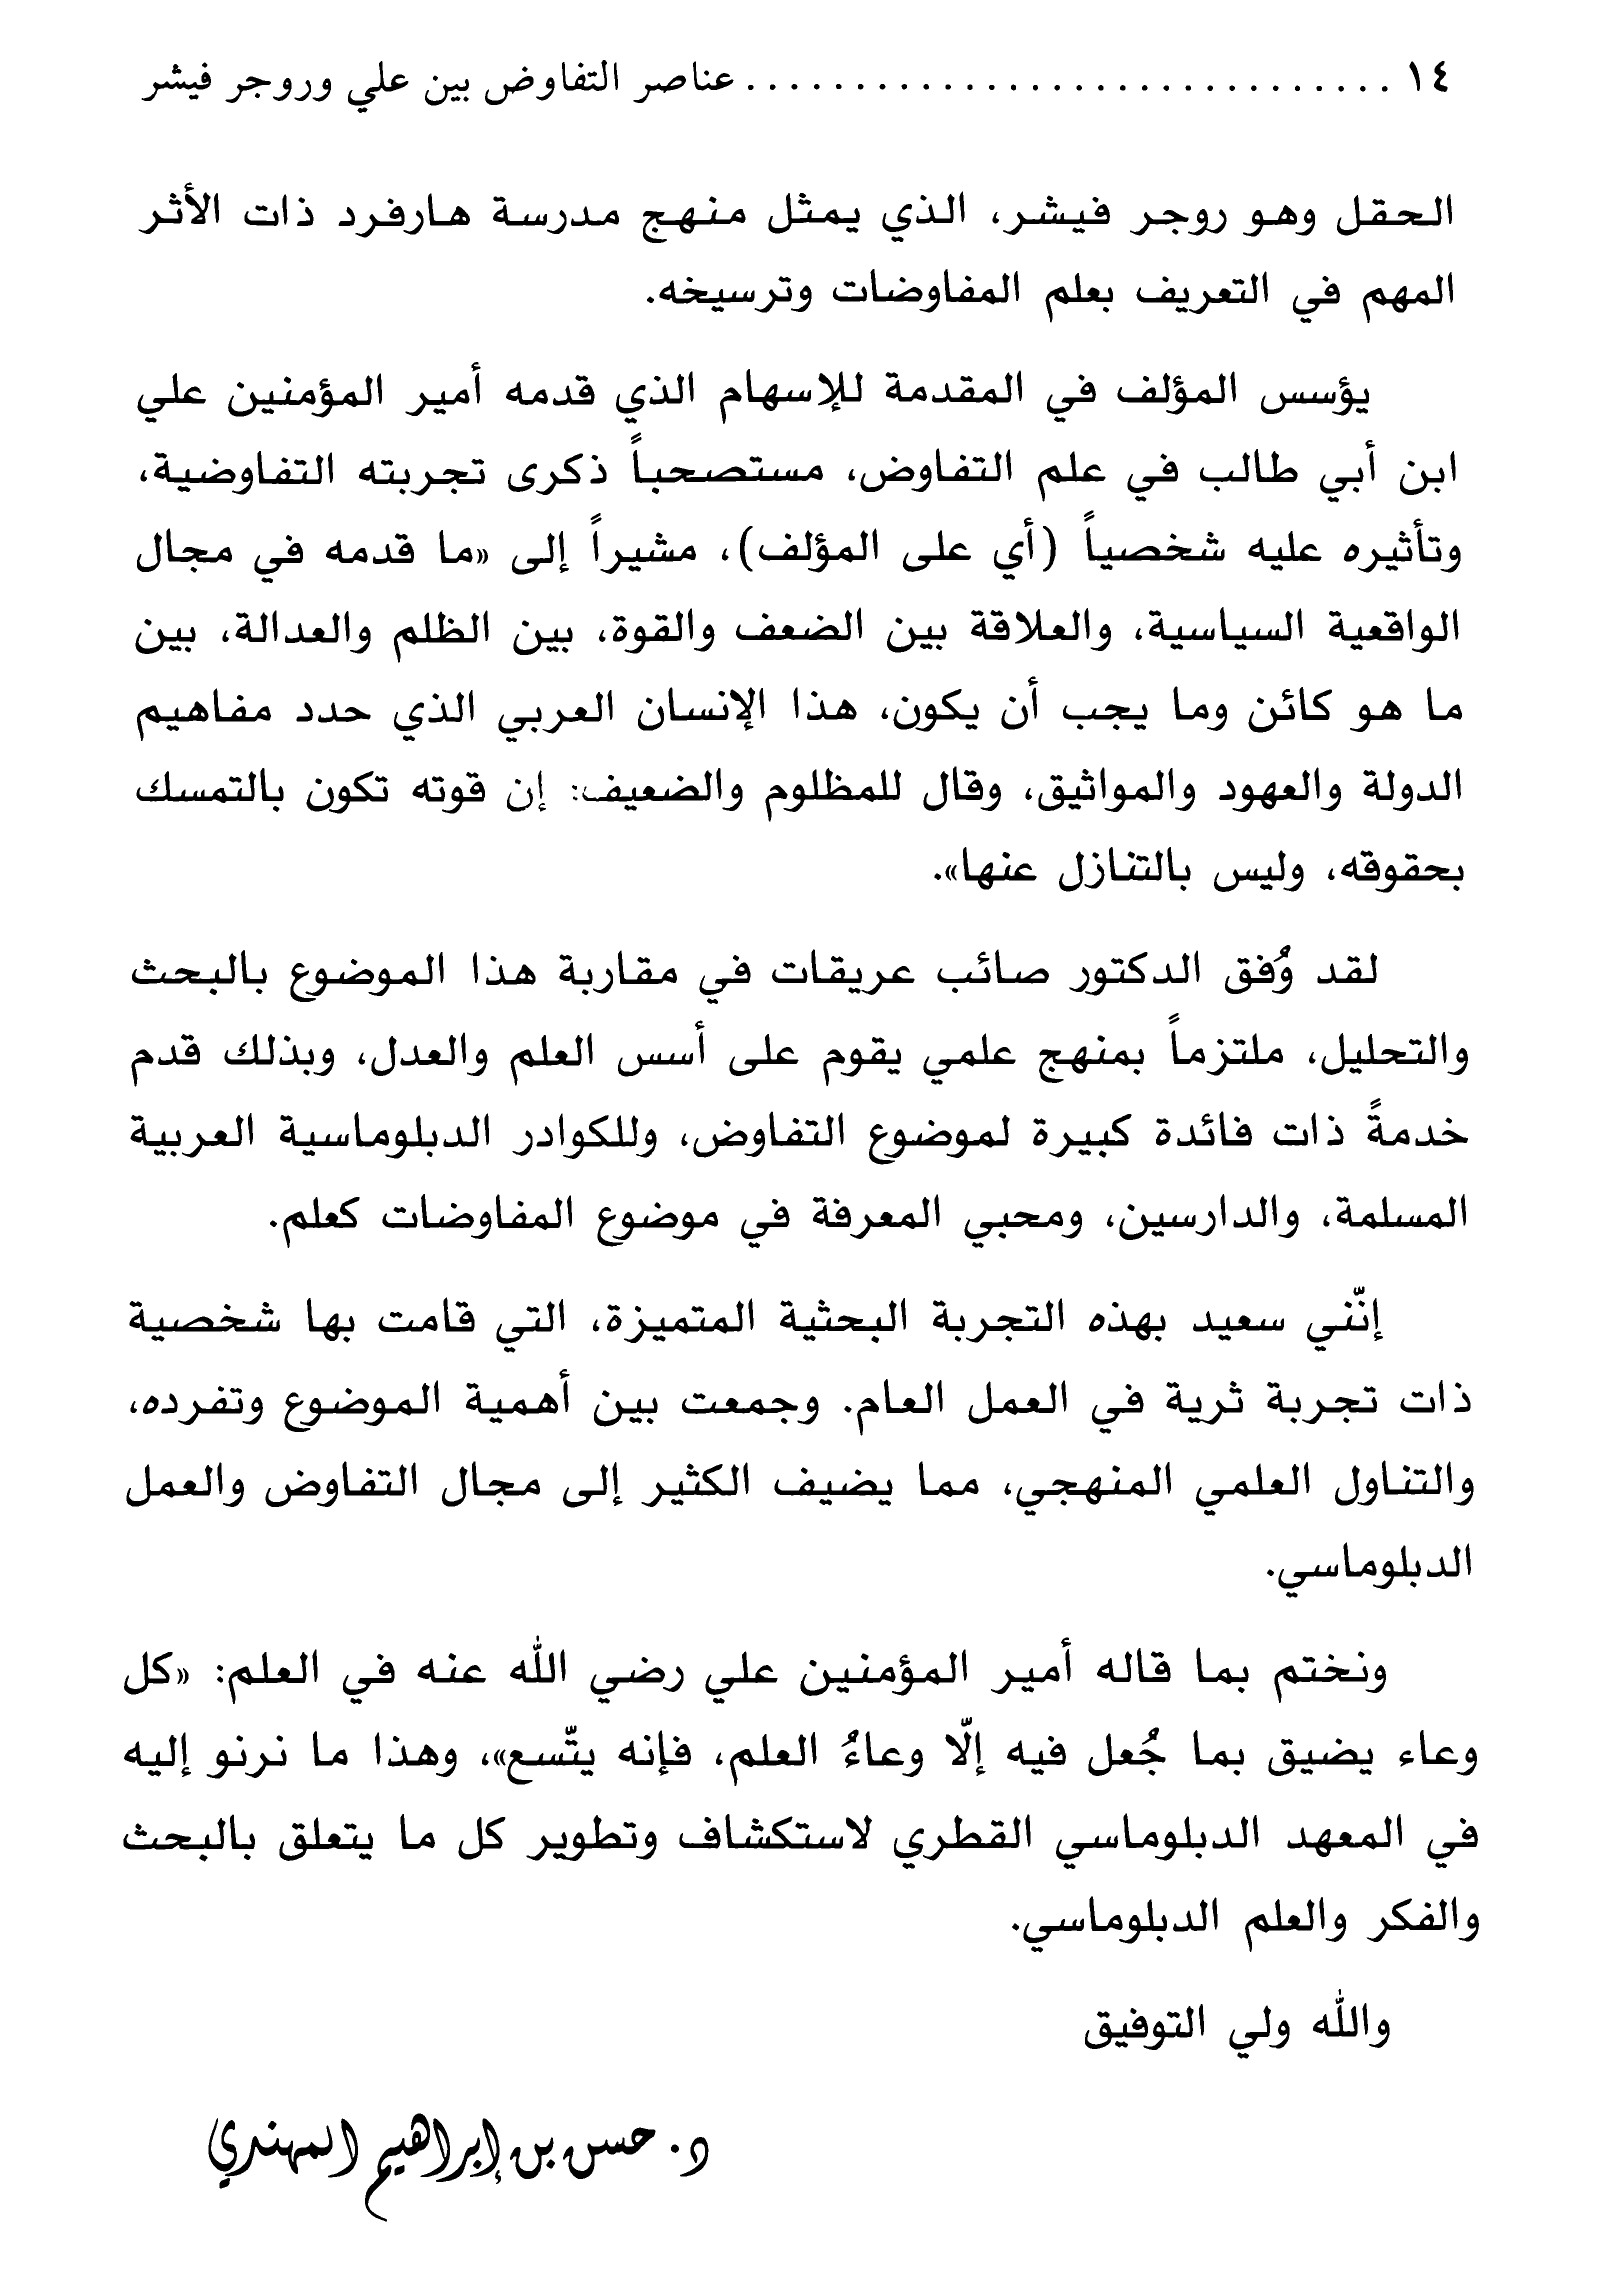 ١٤ .............................. عناصر التفاوض بين علي وروجر فيشر
الحقل وهو روجر فيشر، الذي يمثل منهج مدرسة هارفرد ذات الأثر
المهم في التعريف بعلم المفاوضات وترسيخه.
يؤسس المؤلف في المقدمة للإسهام الذي قدمه أمير المؤمنين علي
ابن أبي طالب في علم التفاوض، مستصحباً ذكرى تجربته التفاوضية،
وتأثيره عليه شخصياً (أي على المؤلف)، مشيراً إلى «ما قدمه في مجال
الواقعية السياسية، والعلاقة بين الضعف والقوة، بين الظلم والعدالة، بين
ما هو كائن وما يجب أن يكون، هذا الإنسان العربي الذي حدد مفاهيم
الدولة والعهود والمواثيق، وقال للمظلوم والضعيف: إن قوته تكون بالتمسك
بحقوقه، وليس بالتنازل عنها».
لقد وُفق الدكتور صائب عريقات في مقاربة هذا الموضوع بالبحث
والتحليل، ملتزماً بمنهج علمي يقوم على أسس العلم والعدل، وبذلك قدم
خدمةً ذات فائدة كبيرة لموضوع التفاوض، وللكوادر الدبلوماسية العربية
المسلمة، والدارسين، ومحبي المعرفة في موضوع المفاوضات كعلم.
إنّني سعيد بهذه التجربة البحثية المتميزة، التي قامت بها شخصية
ذات تجربة ثرية في العمل العام. وجمعت بين أهمية الموضوع وتفرده،
والتناول العلمي المنهجي، مما يضيف الكثير إلى مجال التفاوض والعمل
الدبلوماسي.
ونختم بما قاله أمير المؤمنين علي رضي الله عنه في العلم: «كل
وعاء يضيق بما جُعل فيه إلّا وعاءُ العلم، فإنه يتّسع»، وهذا ما نرنو إليه
في المعهد الدبلوماسي القطري لاستكشاف وتطوير كل ما يتعلق بالبحث
والفكر والعلم الدبلوماسي.
والله ولي التوفيق
د. حسن بن إبراهيم المهندي